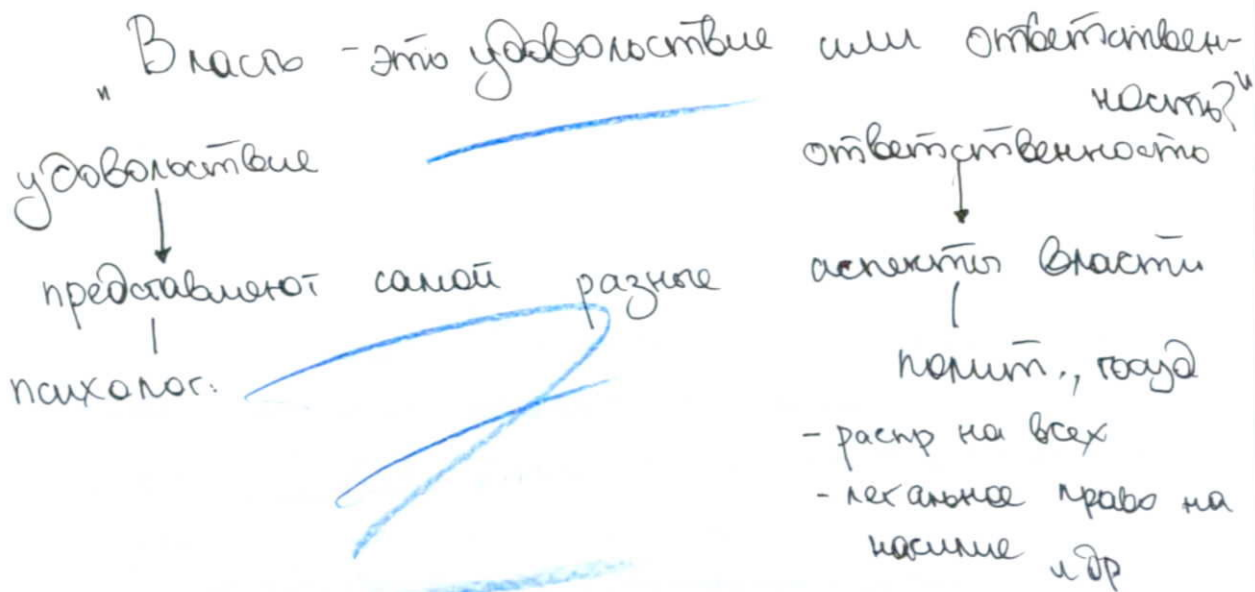 „Власть - это удовольствие или ответствен-
ность?"
удовольствие ответственность
представляют самой разные аспекты власти
психолог. полит., госуд
- распр на всех
- легальное право на
насилие и др